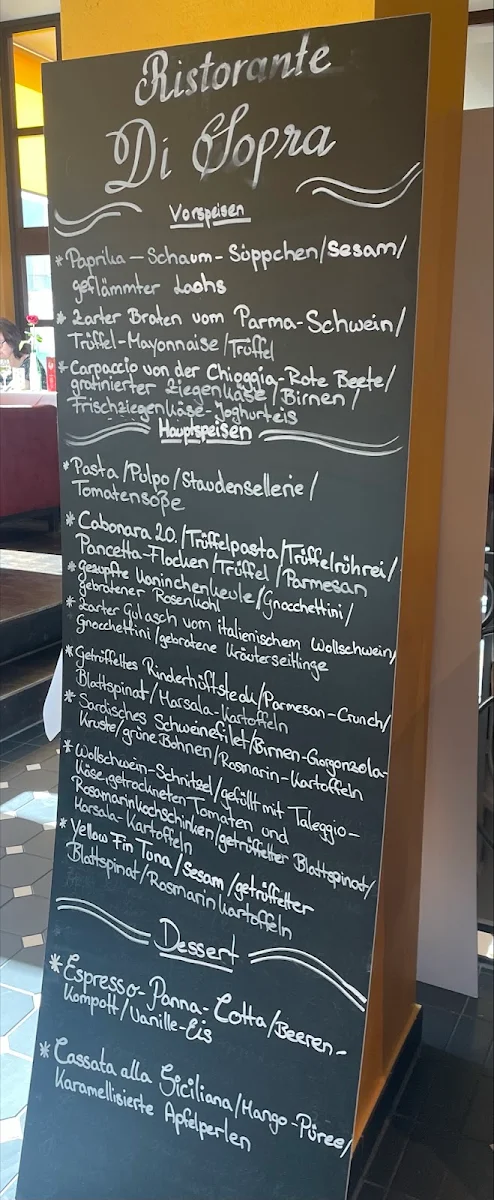 Ristorante
Di Sopra
Vorspeisen
* Paprika - Schaum - Söppchen/Sesam/
geflämmter Lachs
* Zarter Braten vom Parma-Schwein/
Trüffel-Mayonnaise/Trüffel
* Carpaccio von der Chioggia-Rote Beete/
gratinierter Ziegenkäse/Birnen/
Frischziegenkäse-Joghurteis
Hauptspeisen
* Pasta/Pulpo/Staudensellerie/
Tomatensoße
* Cabonara 2.0./Trüffelpasta/Trüffelrührei/
Pancetta-Flocken/Trüffel/Parmesan
* gezupfte Kaninchenkeule/Gnocchettini/
gebratener Rosenkohl
* Zarter Gulasch vom italienischem Wollschwein/
Gnocchettini/gebratene Kräuterseitlinge
* Getrüffeltes Rinderhüftsteak/Parmesan-Crunch/
Blattspinat/Marsala-Kartoffeln
* Sardisches Schweinefilet/Birnen-Gorgonzola-
Kruste/grüne Bohnen/Rosmarin-Kartoffeln
* Wollschwein-Schnitzel/gefüllt mit Taleggio-
Käse, getrockneten Tomaten und
Rosamarinkochschinken/getrüffelter Blattspinat/
Marsala-Kartoffeln
* Yellow Fin Tuna/Sesam/getrüffelter
Blattspinat/Rosmarinkartoffeln
Dessert
* Espresso-Panna-Cotta/Beeren-
Kompott/Vanille-Eis
* Cassata alla Siciliana/Mango-Püree/
Karamellisierte Apfelperlen